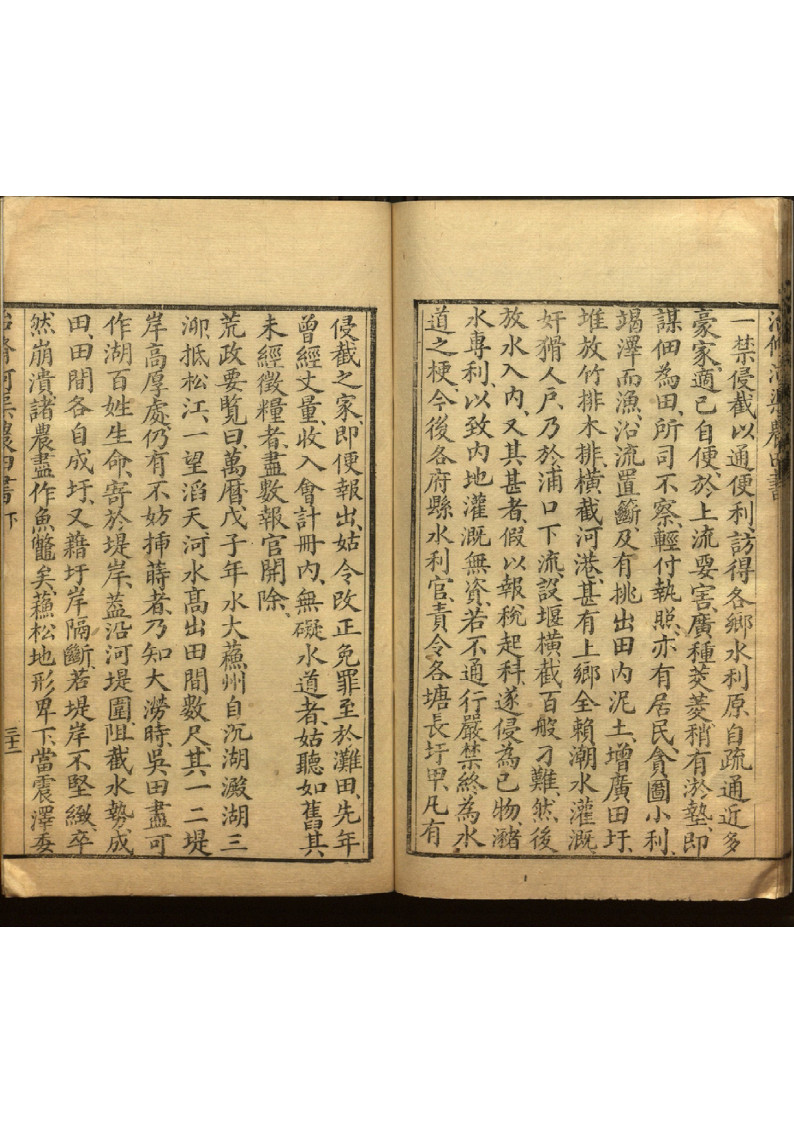 一禁侵截以通便利、訪得各鄉水利原自疏通近多
豪家、適已自便、於上流要害、廣種茭菱稍有淤墊、即
謀佃為田、所司不察、輕付執照、亦有居民、貪圖小利、
竭澤而漁、沿流置籪、及有挑出田內泥土、增廣田圩、
堆放竹排木排、橫截河港、甚有上鄉全賴潮水灌溉、
奸猾人戶、乃於浦口下流、設堰橫截百般刁難、然後
放水入內、又其甚者、假以報稅起科、遂侵為已物、瀦
水專利、以致內地灌溉無資、若不通行嚴禁終為水
道之梗、今後各府縣水利官、責令各塘長圩甲、凡有
侵截之家、即便報出、姑令改正免罪至於灘田、先年
曾經丈量、收入會計冊內、無礙水道者、姑聽如舊其
未經徵糧者、盡數報官開除、
荒政要覽曰、萬曆戊子年水大蘇州自沉湖澱湖三
泖抵松江、一望滔天河水高出田間數尺、其一二堤
岸高厚處、仍有不妨揷蒔者、乃知大澇時、吳田盡可
作湖百姓生命、寄於堤岸、蓋沿河堤圍、阻截水勢、成
田、田間各自成圩、又藉圩岸隔斷、若堤岸不堅緻、卒
然崩潰、諸農盡作魚鱉矣、蘇松地形卑下、當震澤委
農田書 下
三十二